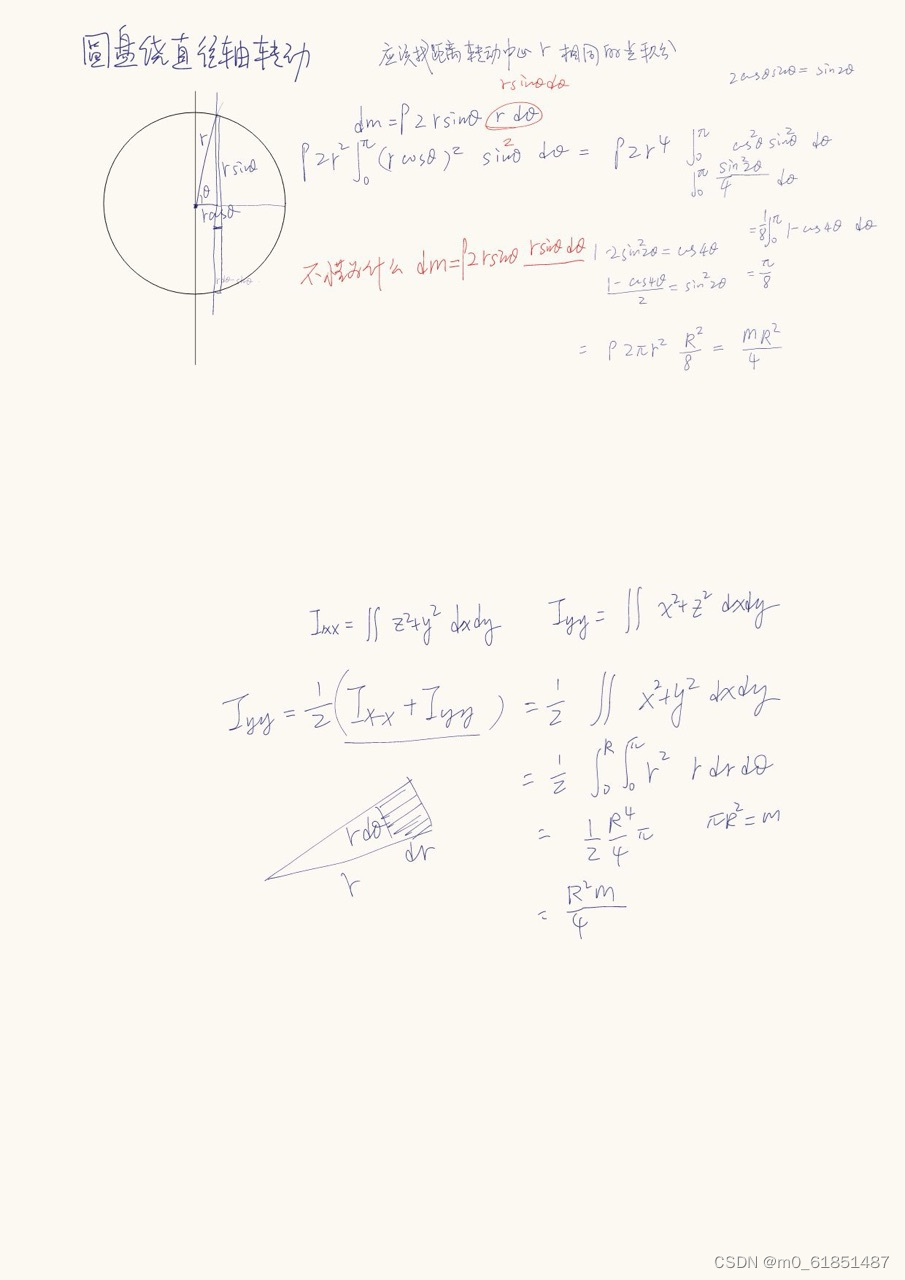 圆盘绕直径轴转动
应该找距离转动中心 r 相同的点积分
2cosθsinθ = sin2θ
rsinθdθ
dm = ρ 2 r sinθ r dθ
r
rsinθ
θ
rcosθ
ρ2r² ∫₀^π (r cosθ)² sin²θ dθ = ρ2r⁴ ∫₀^π cos²θ sin²θ dθ
∫₀^π sin²2θ/4 dθ
= 1/8 ∫₀^π 1-cos4θ dθ
不懂为什么 dm=ρ2rsinθ rsinθdθ
1-2sin²2θ = cos4θ
= π/8
(1-cos4θ)/2 = sin²2θ
= ρ2πr² R²/8 = mR²/4
Ixx = ∬ z²+y² dxdy Iyy = ∬ x²+z² dxdy
Iyy = 1/2 (Ixx + Iyy) = 1/2 ∬ x²+y² dxdy
= 1/2 ∫₀^R ∫₀^π r² r dr dθ
rdθ
dr
r
= 1/2 R⁴/4 π πR² = m
= R²m/4
CSDN @m0_61851487